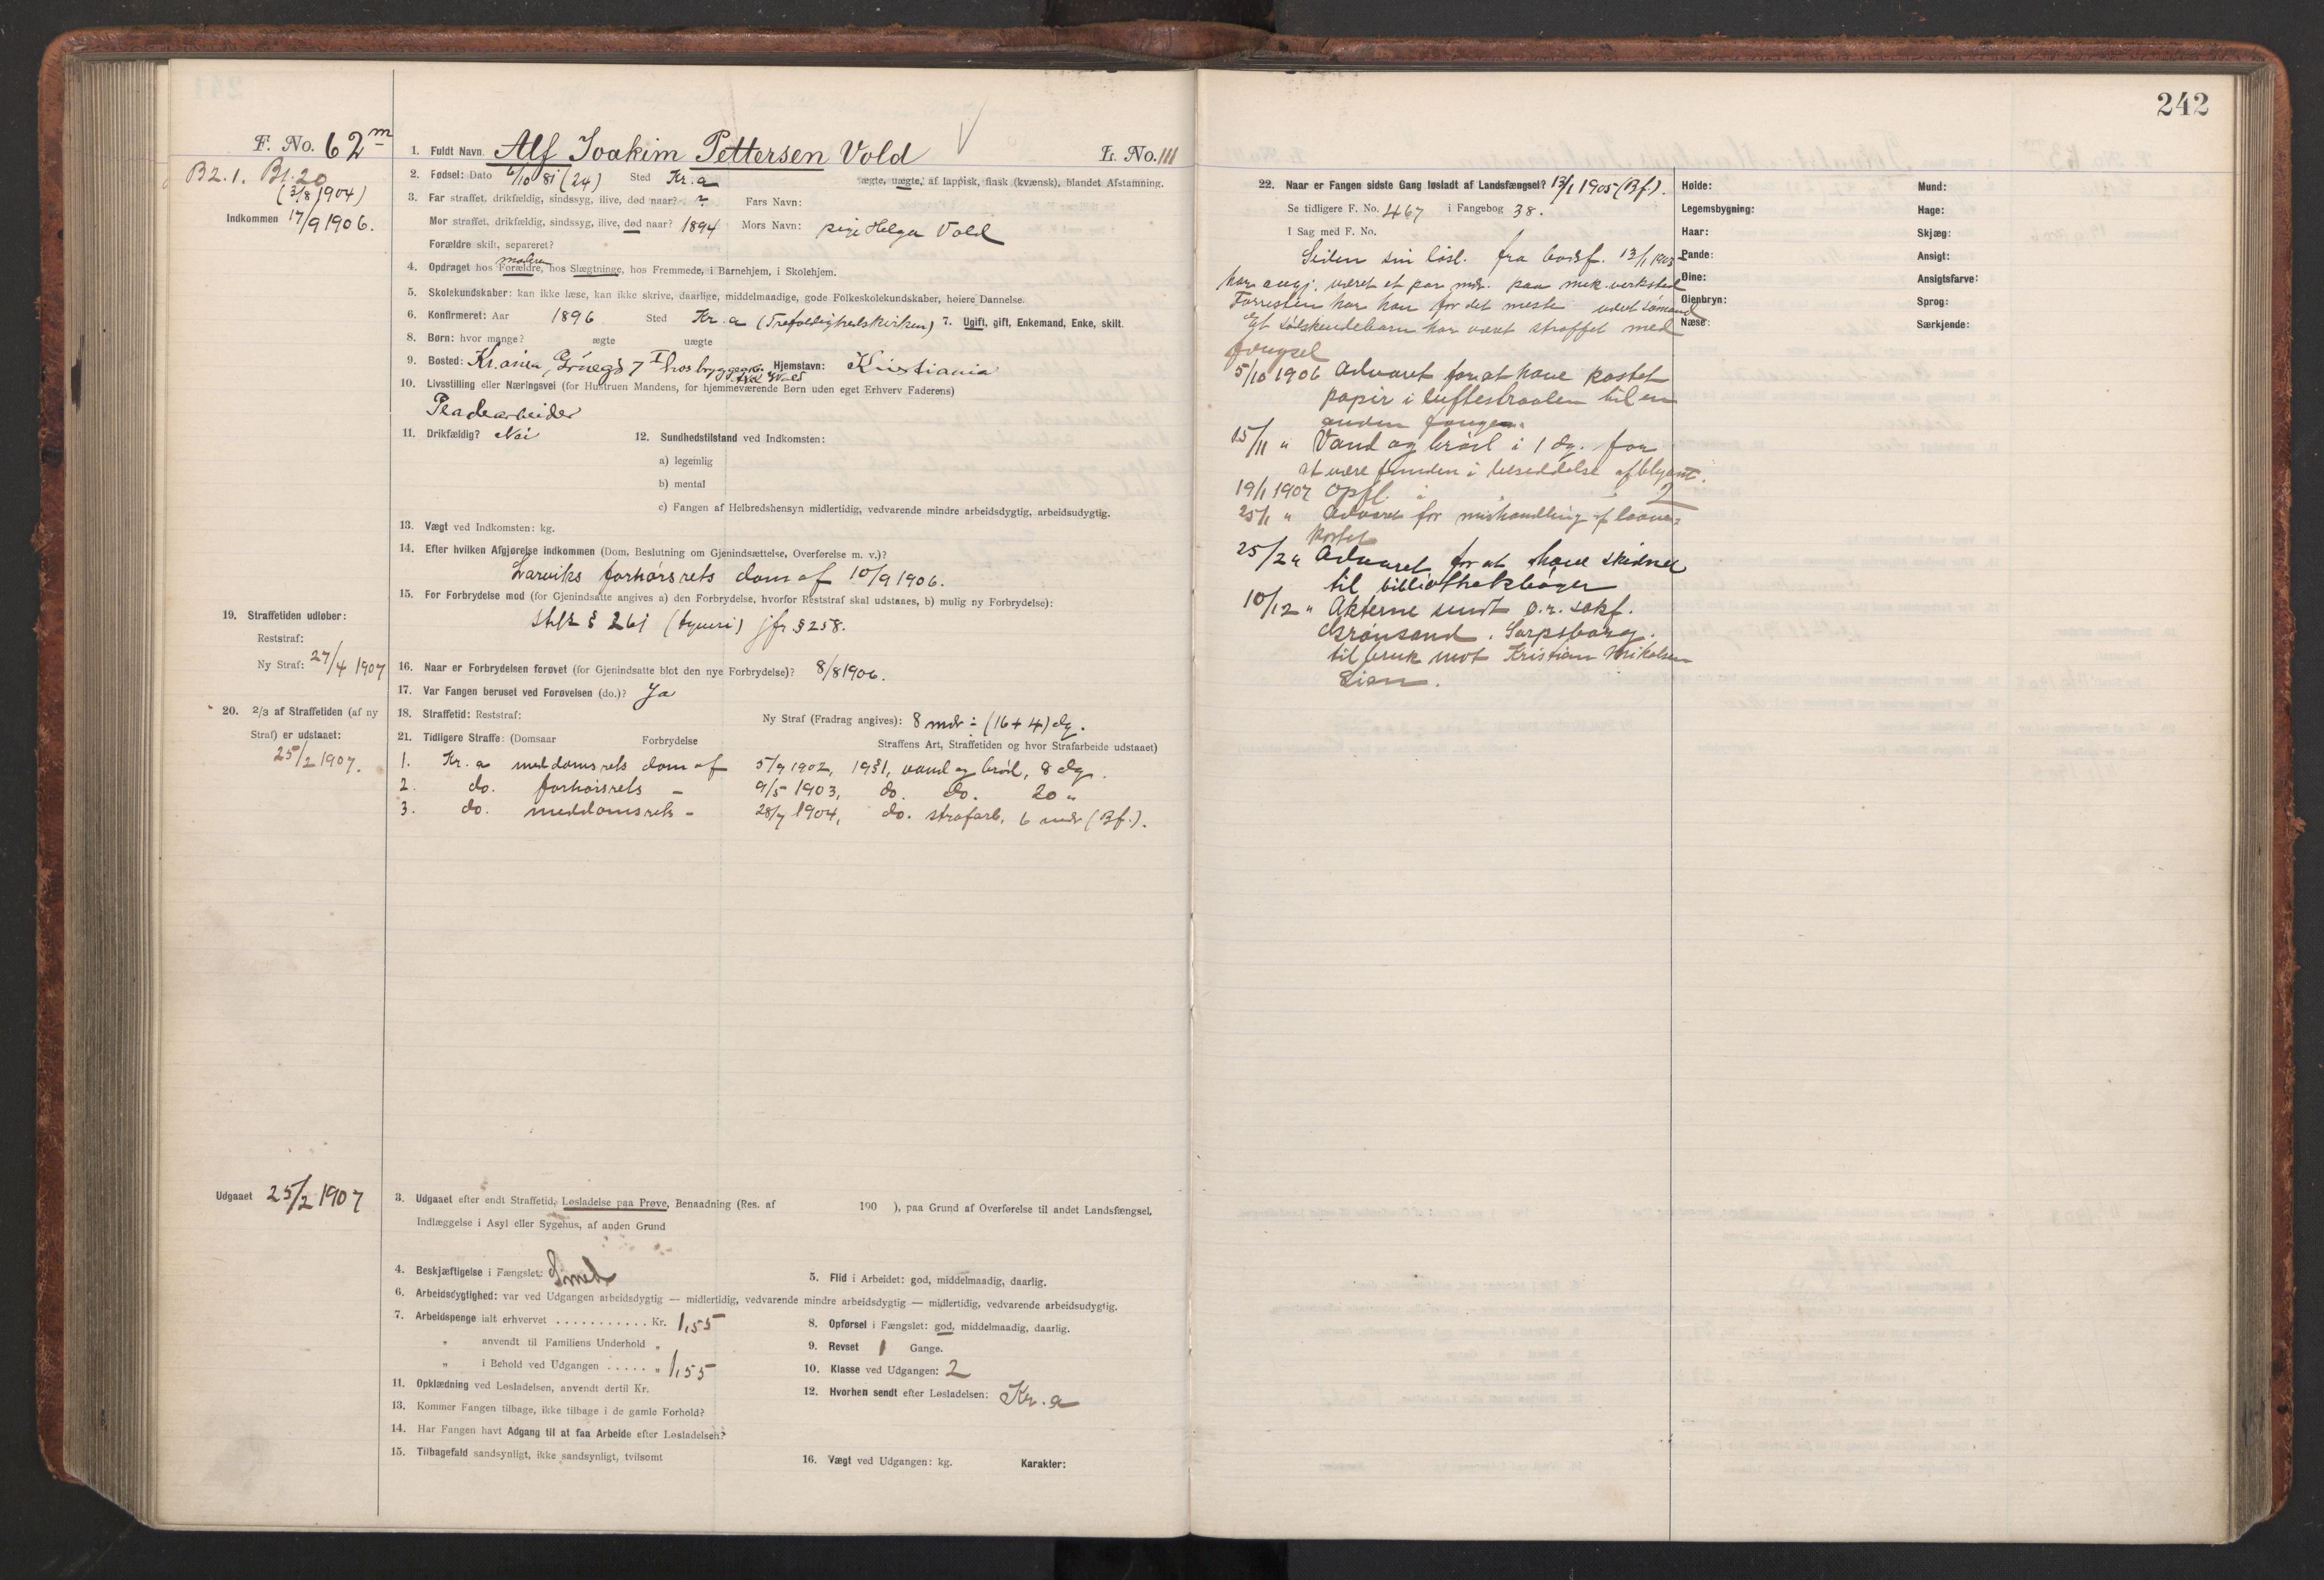 242
F. No. 62 m
B 2. 1. Bl. 20
(3/8 1904)
Indkommen 17/9 1906.
1. Fuldt Navn Alf Joakim Pettersen Vold L. No. 111
2. Fødsel: Dato 6/10 81 (24) Sted Kr.a ægte, uægte, af lappisk, finsk (kvænsk), blandet Afstamning.
3. Far straffet, drikfældig, sindssyg, ilive, død naar? ? Fars Navn:
Mor straffet, drikfældig, sindssyg, ilive, død naar? 1894 Mors Navn: pige Helga Vold
Forældre skilt, separeret?
moderen
4. Opdraget hos Forældre, hos Slægtninge, hos Fremmede, i Barnehjem, i Skolehjem.
5. Skolekundskaber: kan ikke læse, kan ikke skrive, daarlige, middelmaadige, gode Folkeskolekundskaber, høiere Dannelse.
6. Konfirmeret: Aar 1896 Sted Kr.a (Trefoldighedskirken) 7. Ugift, gift, Enkemand, Enke, skilt.
8. Børn: hvor mange? ægte uægte
9. Bosted: Kr.ania, 7 I hos Hjemstavn: Kristiania
10. Livsstilling eller Næringsvei (for Hustruen Mandens, for hjemmeværende Børn uden eget Erhverv Faderens)
Pladearbeider
11. Drikfældig? Nei 12. Sundhedstilstand ved Indkomsten:
a) legemlig
b) mental
c) Fangen af Helbredshensyn midlertidig, vedvarende mindre arbeidsdygtig, arbeidsudygtig.
13. Vægt ved Indkomsten: kg.
14. Efter hvilken Afgjørelse indkommen (Dom, Beslutning om Gjenindsættelse, Overførelse m. v.)?
Larviks forhørsrets dom af 10/9 1906.
15. For Forbrydelse mod (for Gjenindsatte angives a) den Forbrydelse, hvorfor Reststraf skal udstaaes, b) mulig ny Forbrydelse):
§ 261 (tyveri) jfr § 258.
19. Straffetiden udløber:
Reststraf:
Ny Straf: 27/4 1907
16. Naar er Forbrydelsen forøvet (for Gjenindsatte blot den nye Forbrydelse)? 8/8 1906.
17. Var Fangen beruset ved Forøvelsen (do.)? Ja
18. Straffetid: Reststraf: Ny Straf (Fradrag angives): 8 mdr ÷ (16 + 4) dg.
20. 2/3 af Straffetiden (af ny
Straf) er udstaaet:
25/2 1907.
21. Tidligere Straffe: (Domsaar Forbrydelse Straffens Art, Straffetiden og hvor Strafarbeide udstaaet)
1. Kr.a meddomsrets dom af 5/9 1902, 19§1, vand og brød, 8 dg.
2. do. forhørsrets - 9/5 1903, do. do. 20 "
3. do. meddomsrets - 28/7 1904, do. strafarb. 6 mdr (Bf.).
Udgaaet 25/2 1907
3. Udgaaet efter endt Straffetid, Løsladelse paa Prøve, Benaadning (Res. af 190 ), paa Grund af Overførelse til andet Landsfængsel,
Indlæggelse i Asyl eller Sygehus, af anden Grund
4. Beskjæftigelse i Fængslet: Smed 5. Flid i Arbeidet: god, middelmaadig, daarlig.
6. Arbeidsdygtighed: var ved Udgangen arbeidsdygtig — midlertidig, vedvarende mindre arbeidsdygtig — midlertidig, vedvarende arbeidsudygtig.
7. Arbeidspenge ialt erhvervet . . . . . . . . . . . Kr. 1,55 8. Opførsel i Fængslet: god, middelmaadig, daarlig.
" anvendt til Familiens Underhold " 9. Revset 1 Gange.
" i Behold ved Udgangen . . . . . " 1,55 10. Klasse ved Udgangen: 2
11. Opklædning ved Løsladelsen, anvendt dertil Kr. 12. Hvorhen sendt efter Løsladelsen: Kr.a
13. Kommer Fangen tilbage, ikke tilbage i de gamle Forhold?
14. Har Fangen havt Adgang til at faa Arbeide efter Løsladelsen?
15. Tilbagefald sandsynligt, ikke sandsynligt, tvilsomt 16. Vægt ved Udgangen: kg. Karakter:
22. Naar er Fangen sidste Gang løsladt af Landsfængsel? 13/1 1905 (Bf).
Se tidligere F. No. 467 i Fangebog 38.
I Sag med F. No.
Siden sin løsl. fra bodsf. 13/1 1905
har angj. været et par mdr. paa mek. verksted
Forresten har han for det meste været sømand
Et søskendebarn har været straffet med
fængsel
5/10 1906 Advaret for at have kastet
papir i luftestraalen til en
anden fange.
15/11 " Vand og brød i 1 dg. for
at være funden i besiddelse af blyant.
19/1 1907 Opfl. i 2
25/1 " Advaret for mishandling af
kostet
25/2 " Advaret for at have skidnet
til bibliothekbøger
10/12 " Akterne sendt o.r. sakf.
Grønsand, Sarpsborg,
til bruk mot Kristian Mikalsen
Lien.
Høide:
Legemsbygning:
Haar:
Pande:
Øine:
Øienbryn:
Næse:
Mund:
Hage:
Skjæg:
Ansigt:
Ansigtsfarve:
Sprog:
Særkjende: